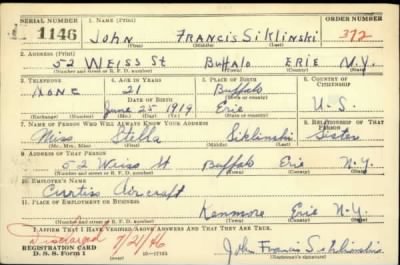 SERIAL NUMBER 1. NAME (Print) ORDER NUMBER
1146 John Francis Siklinski 372
(First) (Middle) (Last)
2. ADDRESS (Print)
52 Weiss St Buffalo Erie N.Y.
(Number and street or R. F. D. number) (Town) (County) (State)
3. TELEPHONE 4. AGE IN YEARS 5. PLACE OF BIRTH 6. COUNTRY OF CITIZENSHIP
None 21 Buffalo
DATE OF BIRTH (Town or county)
June 25 1919 Erie U-S.
(Exchange) (Number) (Mo.) (Day) (Yr.) (State or country)
7. NAME OF PERSON WHO WILL ALWAYS KNOW YOUR ADDRESS 8. RELATIONSHIP OF THAT PERSON
Miss Stella Siklinski Sister
(Mr., Mrs., Miss) (First) (Middle) (Last)
9. ADDRESS OF THAT PERSON
52 Weiss St Buffalo Erie N.Y.
(Number and street or R. F. D. number) (Town) (County) (State)
10. EMPLOYER'S NAME
Curtiss Aircraft
11. PLACE OF EMPLOYMENT OR BUSINESS
Kenmore Erie N.Y.
(Number and street or R. F. D. number) (Town) (County) (State)
I AFFIRM THAT I HAVE VERIFIED ABOVE ANSWERS AND THAT THEY ARE TRUE.
Discharged 7/21/46
REGISTRATION CARD
D. S. S. Form 1 John Francis Siklinski